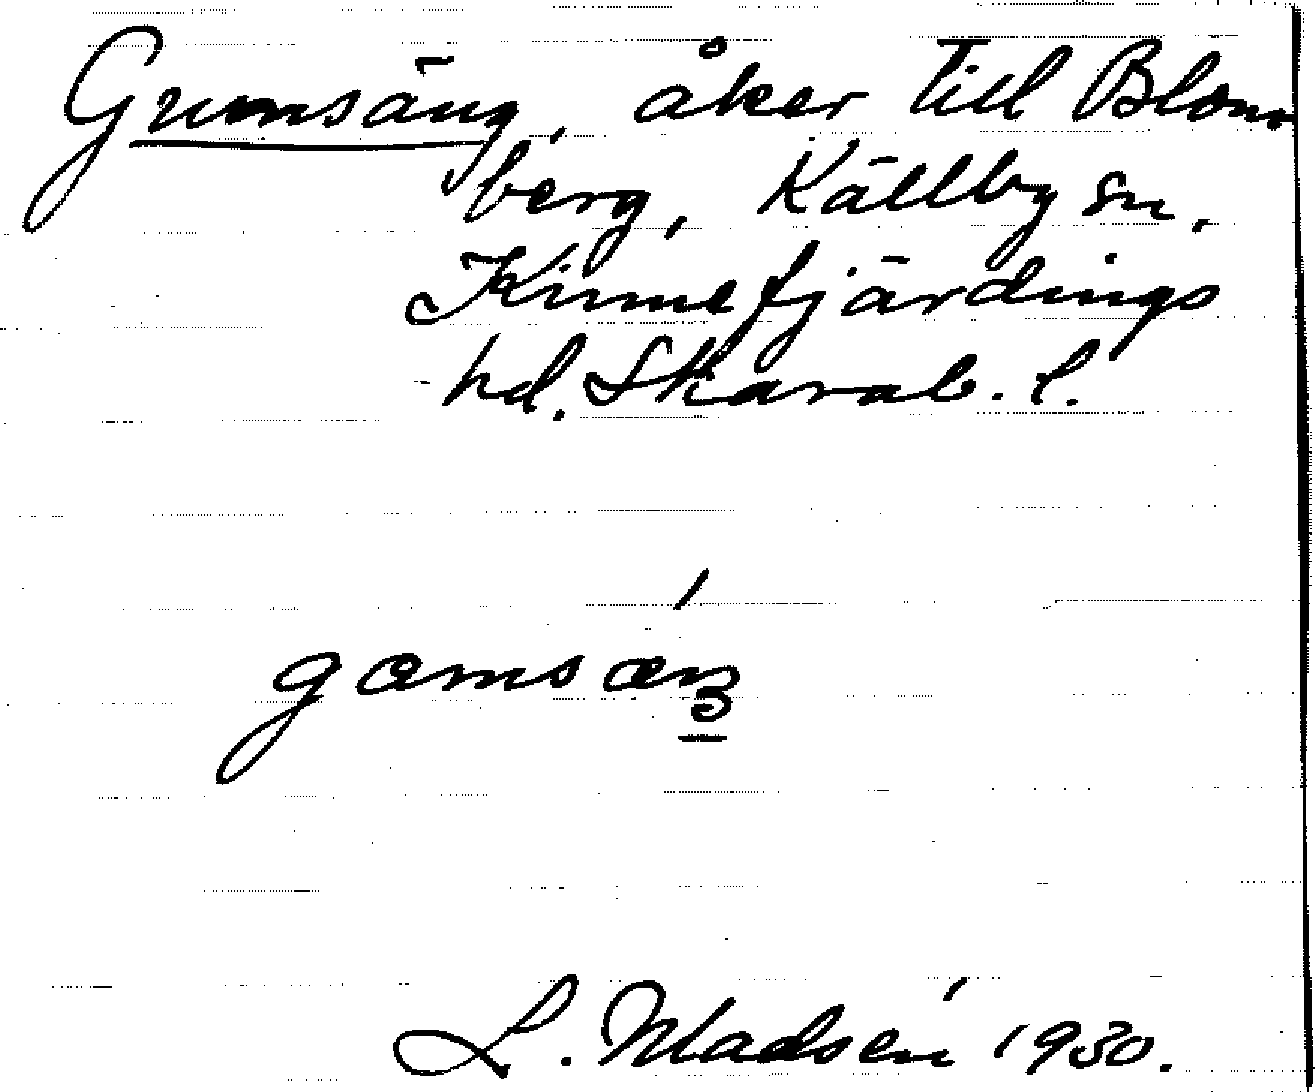 Gumsäng, åker till Blom
berg, Källby sn.
Kinnefjärdings
hd. Skarab. l.
L. Madsén 1930.